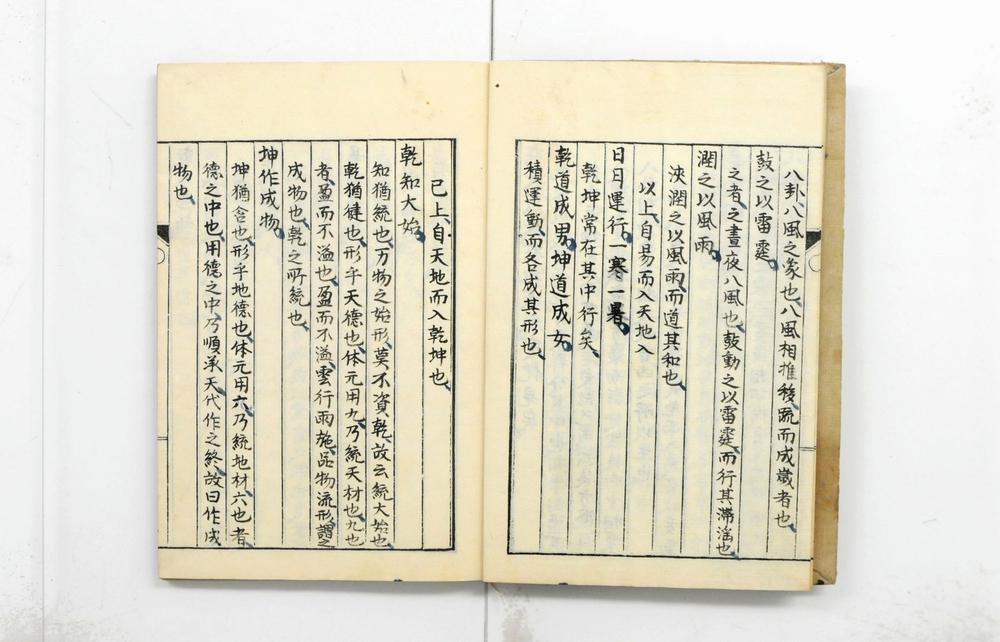 八卦八風之象也八風相推稷䟽而成歲者也
鼓之以雷霆
之者之晝夜八風也鼓動之以雷霆而行其滯滛也
潤之以風雨
浹潤之以風雨而道其和也
以上自易而入天地入
日日運行一寒一暑
乾坤常在其中行矣
乾道成男坤道成女
積運動而各成其形也
已上自天地而入乾坤也
乾知大始
知猶統也万物之始形莫不資乾故云統大始也
乾猶健也形乎天德也体元用九乃統天材也九也
者盈而不溢也盈而不溢雲行雨施品物流形謂之
成物也乾之所統也
坤作成物
坤猶含也形乎地德也体元用六乃統地材六也者
德之中也用德之中乃順承天代作之終故曰作成
物也